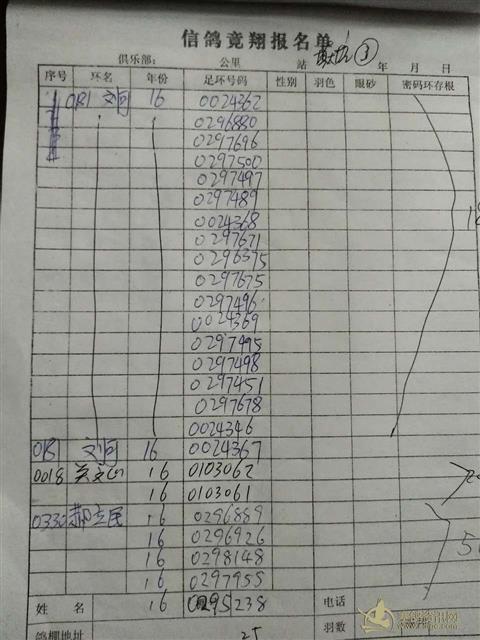 信鸽竟翔报名单
③
俱乐部: 公里 站 年 月 日
序号 环名 年份 足环号码 性别 羽色 眼砂 密码环存根
16 0024362
0296880
0297696
0297500
0297497
0297489
0024368
0297671
0296375
0297675
0297496
0024369
0297495
0297498
0297451
0297678
0024346
16 0024367
0018 16 0103062
16 0103061
0330 郝立民 16 0296889
16 0296926
16 0298148
16 0297955
姓名 16 0295238 电话
鸽棚地址 25 羽数